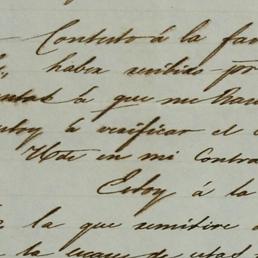 Contesto á la fav
habia recibido por
á que me
estoy á verificar el
Vde en mi Contra
Estoy á la
la que remitire
la de estas